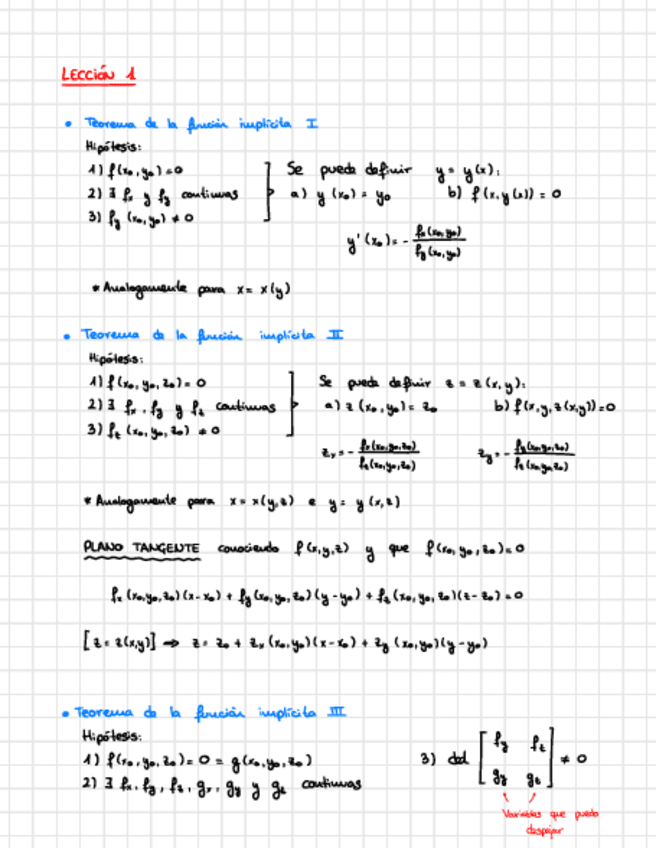 LECCIÓN 1
• Teorema de la función implícita I
Hipótesis:
1) f(x₀, y₀) = 0
2) ∃ fₓ y f_y continuas
3) f_y (x₀, y₀) ≠ 0
Se puede definir y = y(x):
a) y(x₀) = y₀ b) f(x, y(x)) = 0
y'(x₀) = - fₓ(x₀, y₀) / f_y(x₀, y₀)
* Analogamente para x = x(y)
• Teorema de la función implícita II
Hipótesis:
1) f(x₀, y₀, z₀) = 0
2) ∃ fₓ, f_y y f_z continuas
3) f_z (x₀, y₀, z₀) ≠ 0
Se puede definir z = z(x, y):
a) z(x₀, y₀) = z₀ b) f(x, y, z(x,y)) = 0
zₓ = - fₓ(x₀, y₀, z₀) / f_z(x₀, y₀, z₀) z_y = - f_y(x₀, y₀, z₀) / f_z(x₀, y₀, z₀)
* Analogamente para x = x(y,z) e y = y(x,z)
PLANO TANGENTE conociendo f(x,y,z) y que f(x₀, y₀, z₀) = 0
fₓ(x₀, y₀, z₀)(x - x₀) + f_y(x₀, y₀, z₀)(y - y₀) + f_z(x₀, y₀, z₀)(z - z₀) = 0
[z = z(x,y)] ⇒ z = z₀ + zₓ(x₀, y₀)(x - x₀) + z_y(x₀, y₀)(y - y₀)
• Teorema de la función implícita III
Hipótesis:
1) f(x₀, y₀, z₀) = 0 = g(x₀, y₀, z₀)
2) ∃ fₓ, f_y, f_z, gₓ, g_y y g_z continuas
3) det [ f_y f_z
g_y g_z ] ≠ 0
Variables que puedo
despejar